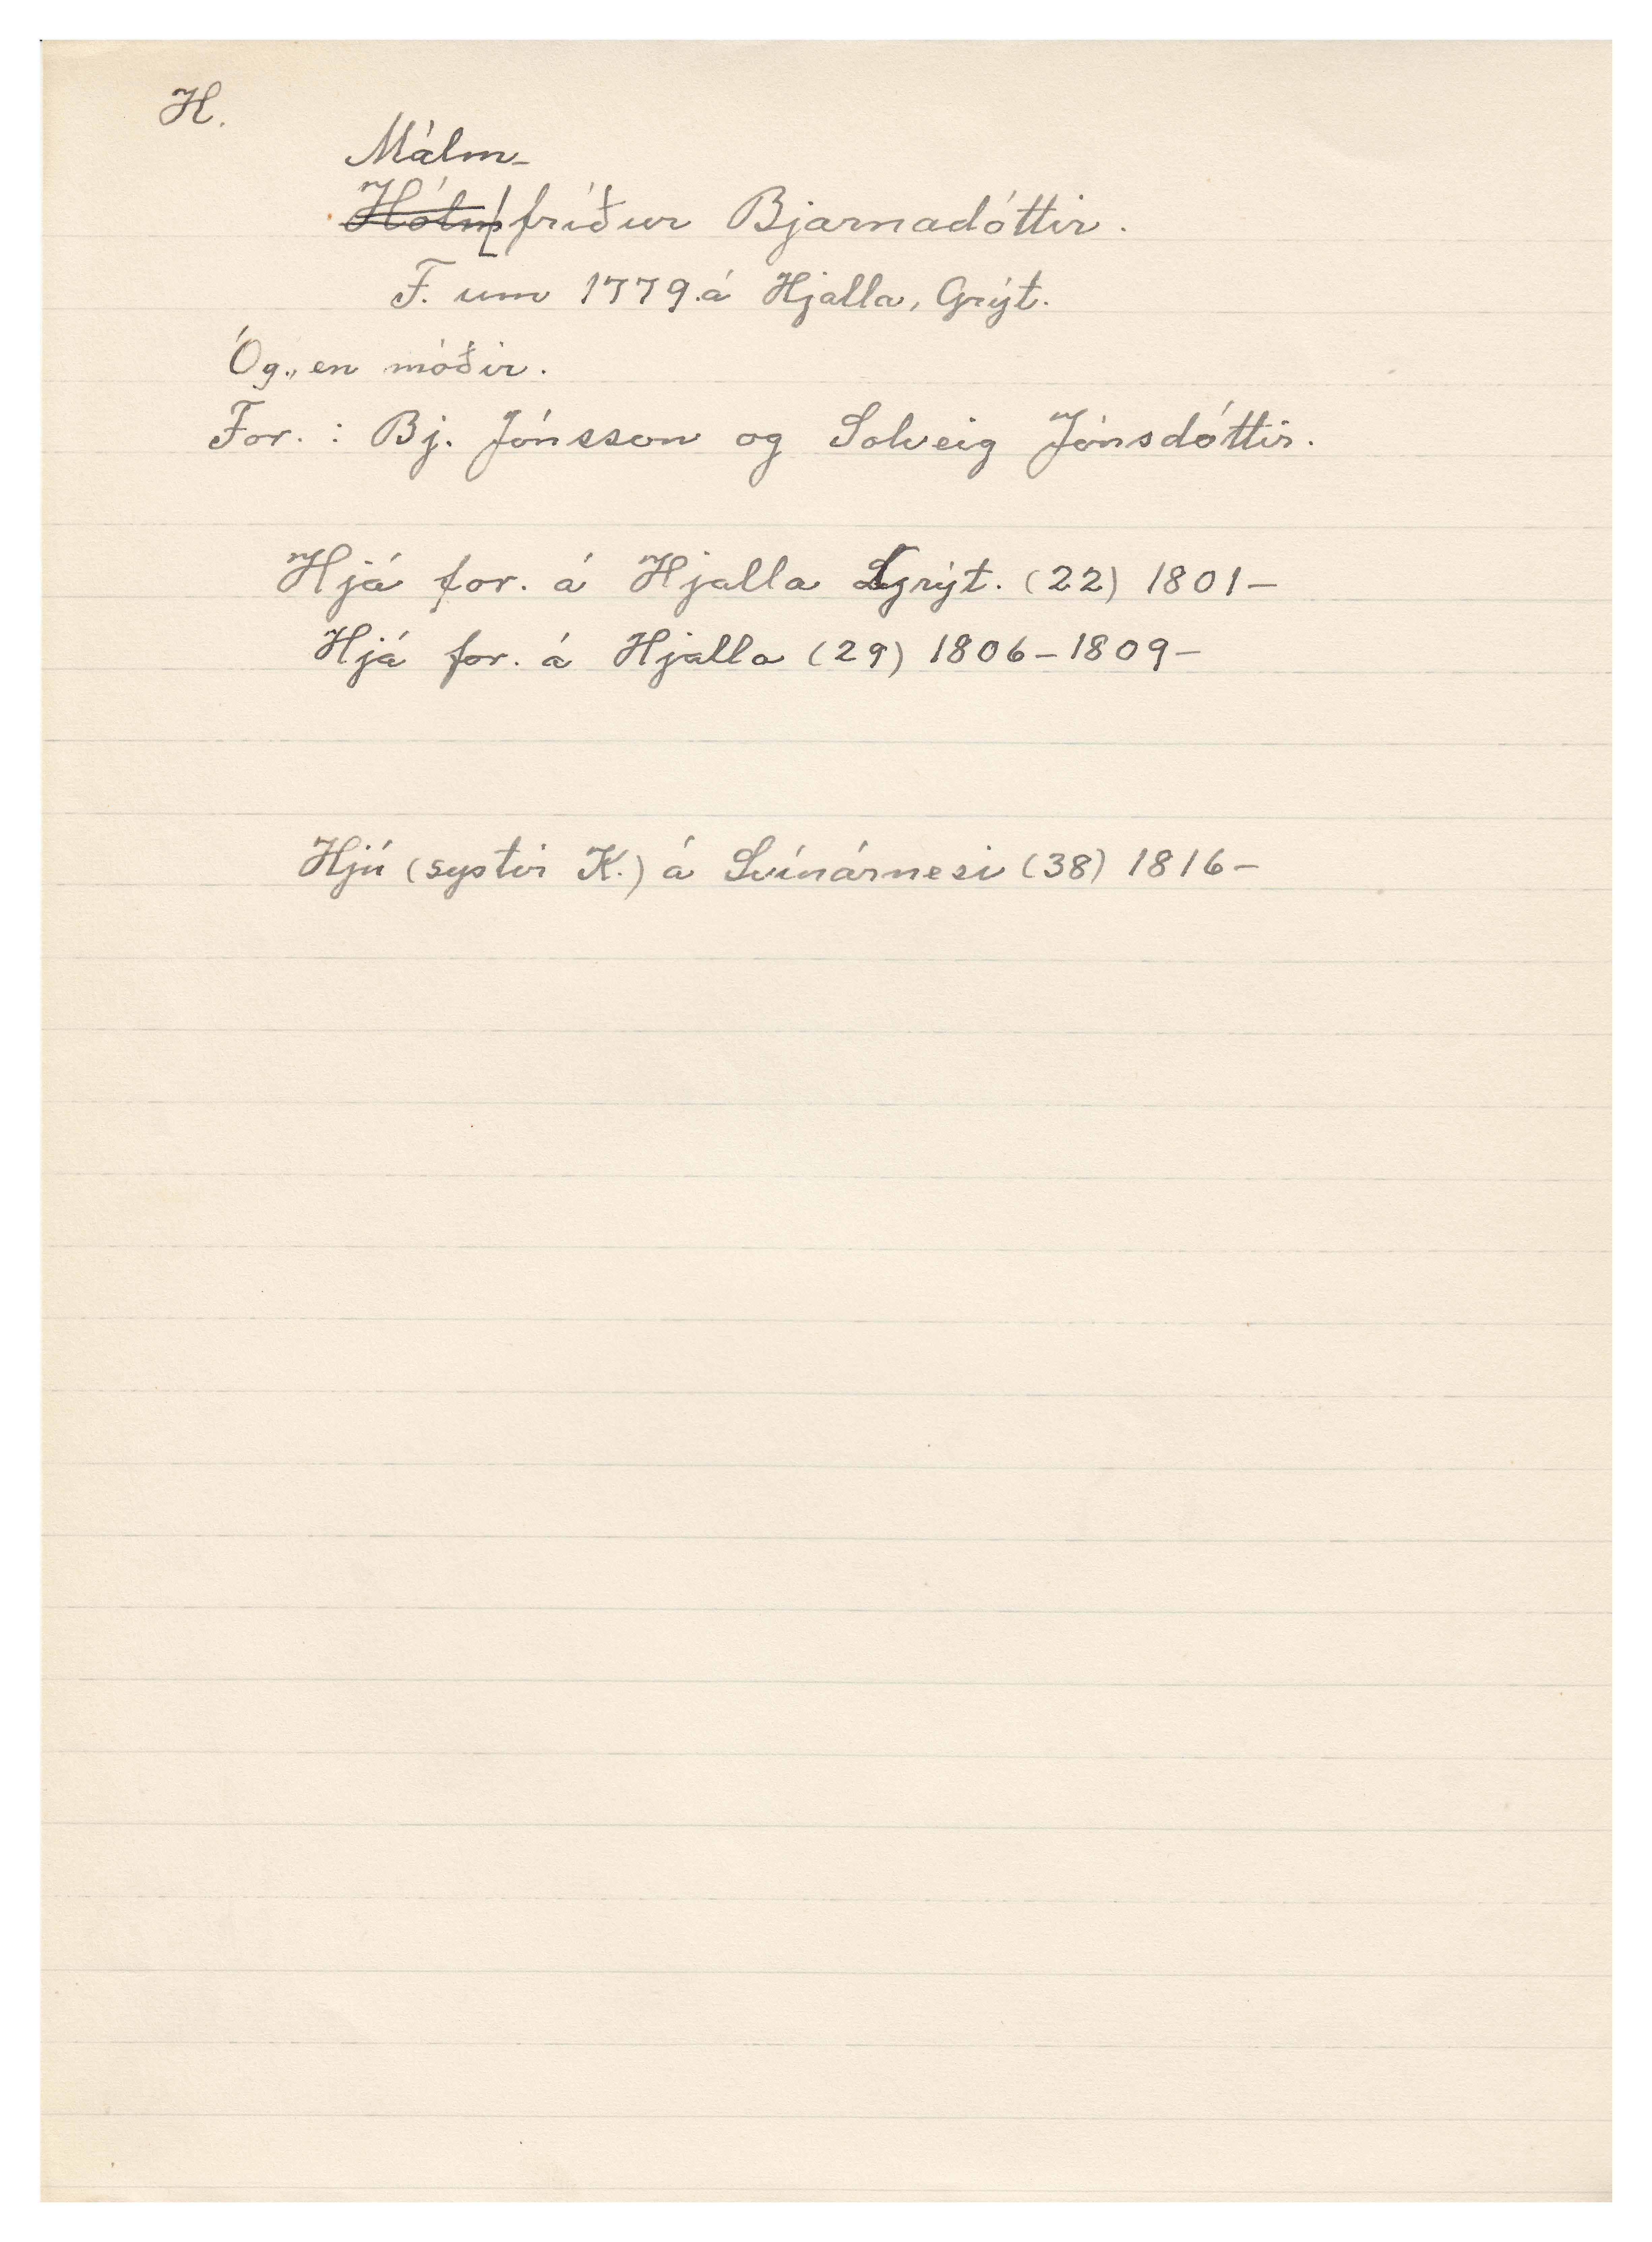 H.
Málm-
Hólmfríður Bjarnadóttir.
F. um 1779.á Hjalla, Grýt.
Óg., en móðir.
For. : Bj. Jónsson og Solveig Jónsdóttir.
Hjá for. á Hjalla Grýt. (22) 1801-
Hjá for. á Hjalla (29) 1806-1809-
Hjú (systir K.) á Svínárnesi (38) 1816-